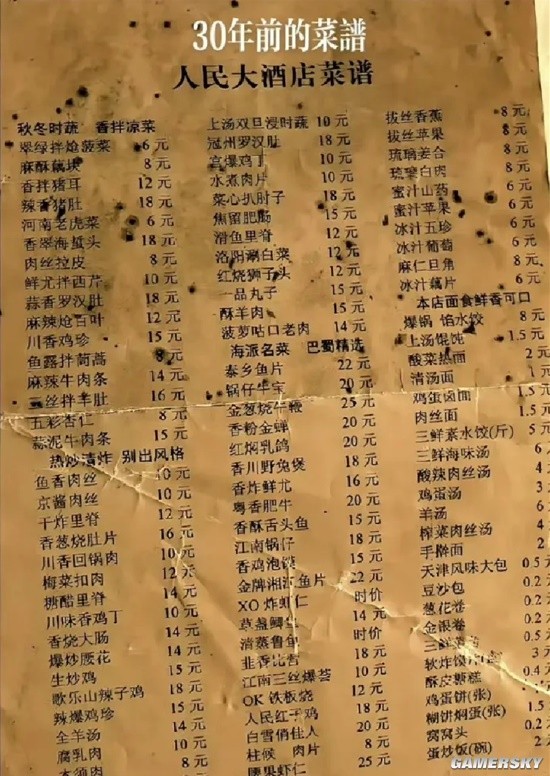 30年前的菜譜
人民大酒店菜谱
秋冬时蔬 香拌凉菜
翠绿拌炝菠菜 6元
麻酥藕块 8元
香拌猪耳 12元
辣香猪肚 18元
河南老虎菜 6元
香翠海蜇头 18元
肉丝拉皮 8元
鲜尤拌西芹 10元
蒜香罗汉肚 18元
麻辣炝百叶 12元
川香鸡珍 15元
鱼露拌茼蒿 8元
麻辣牛肉条 14元
三丝拌羊肚 16元
五彩杏仁 8元
蒜泥牛肉条 15元
热炒清炸 别出风格
鱼香肉丝 10元
京酱肉丝 10元
干炸里脊 12元
香葱烧肚片 15元
川香回锅肉 10元
梅菜扣肉 12元
糖醋里脊 14元
川味香鸡丁 10元
香烧大肠 14元
爆炒腰花 14元
生炒鸡 15元
歌乐山辣子鸡 18元
辣爆鸡珍 15元
全羊汤 14元
腐乳肉
上汤双旦浸时蔬 10元
冠州罗汉肚 18元
宫爆鸡丁 10元
水煮肉片 10元
菜心扒肘子 18元
焦留肥肠 15元
滑鱼里脊 12元
洛阳涮白菜 12元
红烧狮子头 12元
一品丸子 15元
酥羊肉 15元
菠萝咕口老肉 14元
海派名菜 巴蜀精选
泰乡鱼片 22元
锅仔牛宝 20元
金葱烧牛鞭 25元
香粉金蝉 20元
红焖乳鸽 20元
香川野兔煲 18元
香炸鲜尤 16元
粤香肥牛 20元
香酥舌头鱼 15元
江南锅仔 18元
香鸡泡馍 15元
金牌湘江鱼片 22元
XO炸虾仁 时价
草盏鲷鱼 14元
清蒸鲁鱼 时价
韭香比管 14元
江南三丝爆荟 10元
OK铁板烧 12元
人民红子鸡 18元
白雪俏佳人 20元
柱候 肉片 8元
腰果虾仁 25元
拔丝香蕉 8元
拔丝苹果 8元
琉璃姜合 8元
琉璃白肉 8元
蜜汁山药 6元
蜜汁苹果 6元
冰汁五珍 6元
冰汁葡萄 6元
麻仁旦角 8元
冰汁藕片 6元
本店面食鲜香可口
爆锅 馅水饺 8元
上汤馄饨 1.5元
酸菜热面 2元
清汤面 1元
鸡蛋卤面 1.5元
肉丝面 1.5元
三鲜素水饺(斤) 5元
三鲜海味汤 6元
酸辣肉丝汤 4元
鸡蛋汤 3元
羊汤
榨菜肉丝汤 4元
手擀面 2元
天津风味大包 0.5
豆沙包 0.2
葱花卷 0.2
金银卷 0.2
三鲜
软炸馍
酥皮
鸡蛋饼(张)
糊饼焖蛋(张)
窝窝头
蛋炒饭(碗) 2
GAMERSKY